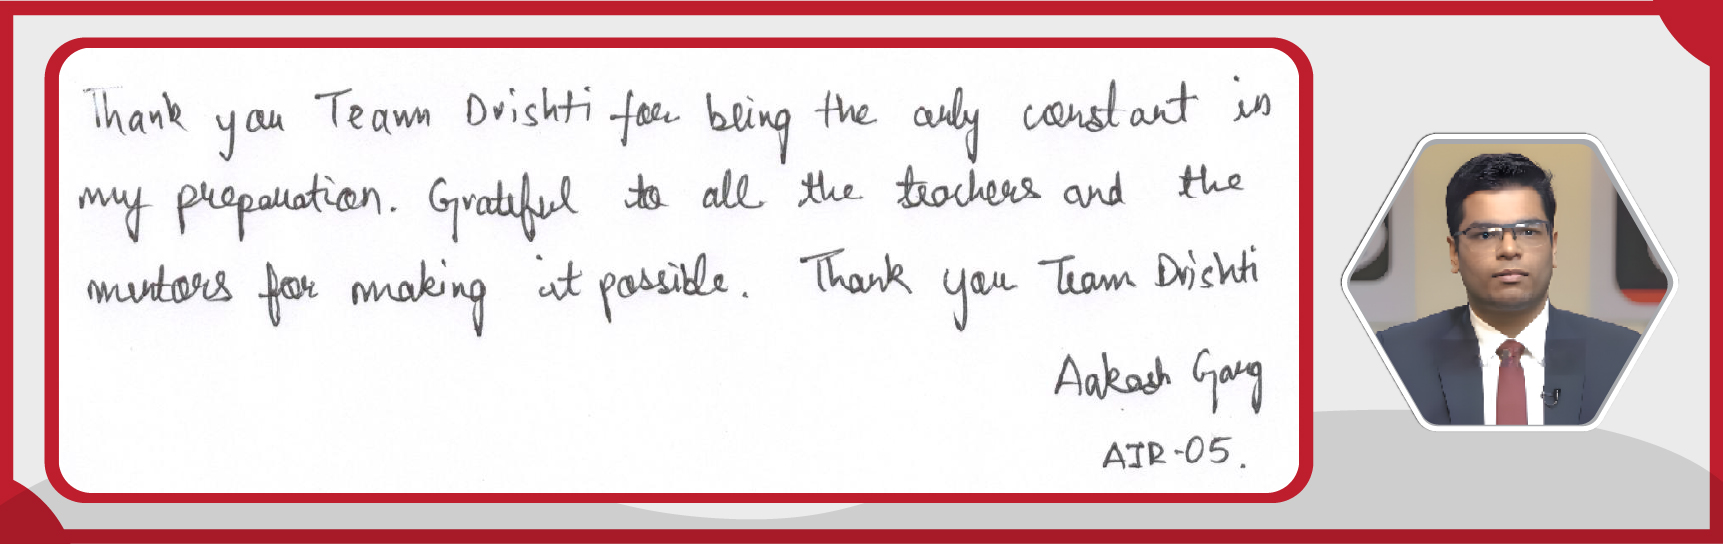 Thank you Team Drishti for being the only constant in
my preparation. Grateful to all the teachers and the
mentors for making it possible. Thank you Team Drishti
Aakash Garg
AIR-05.